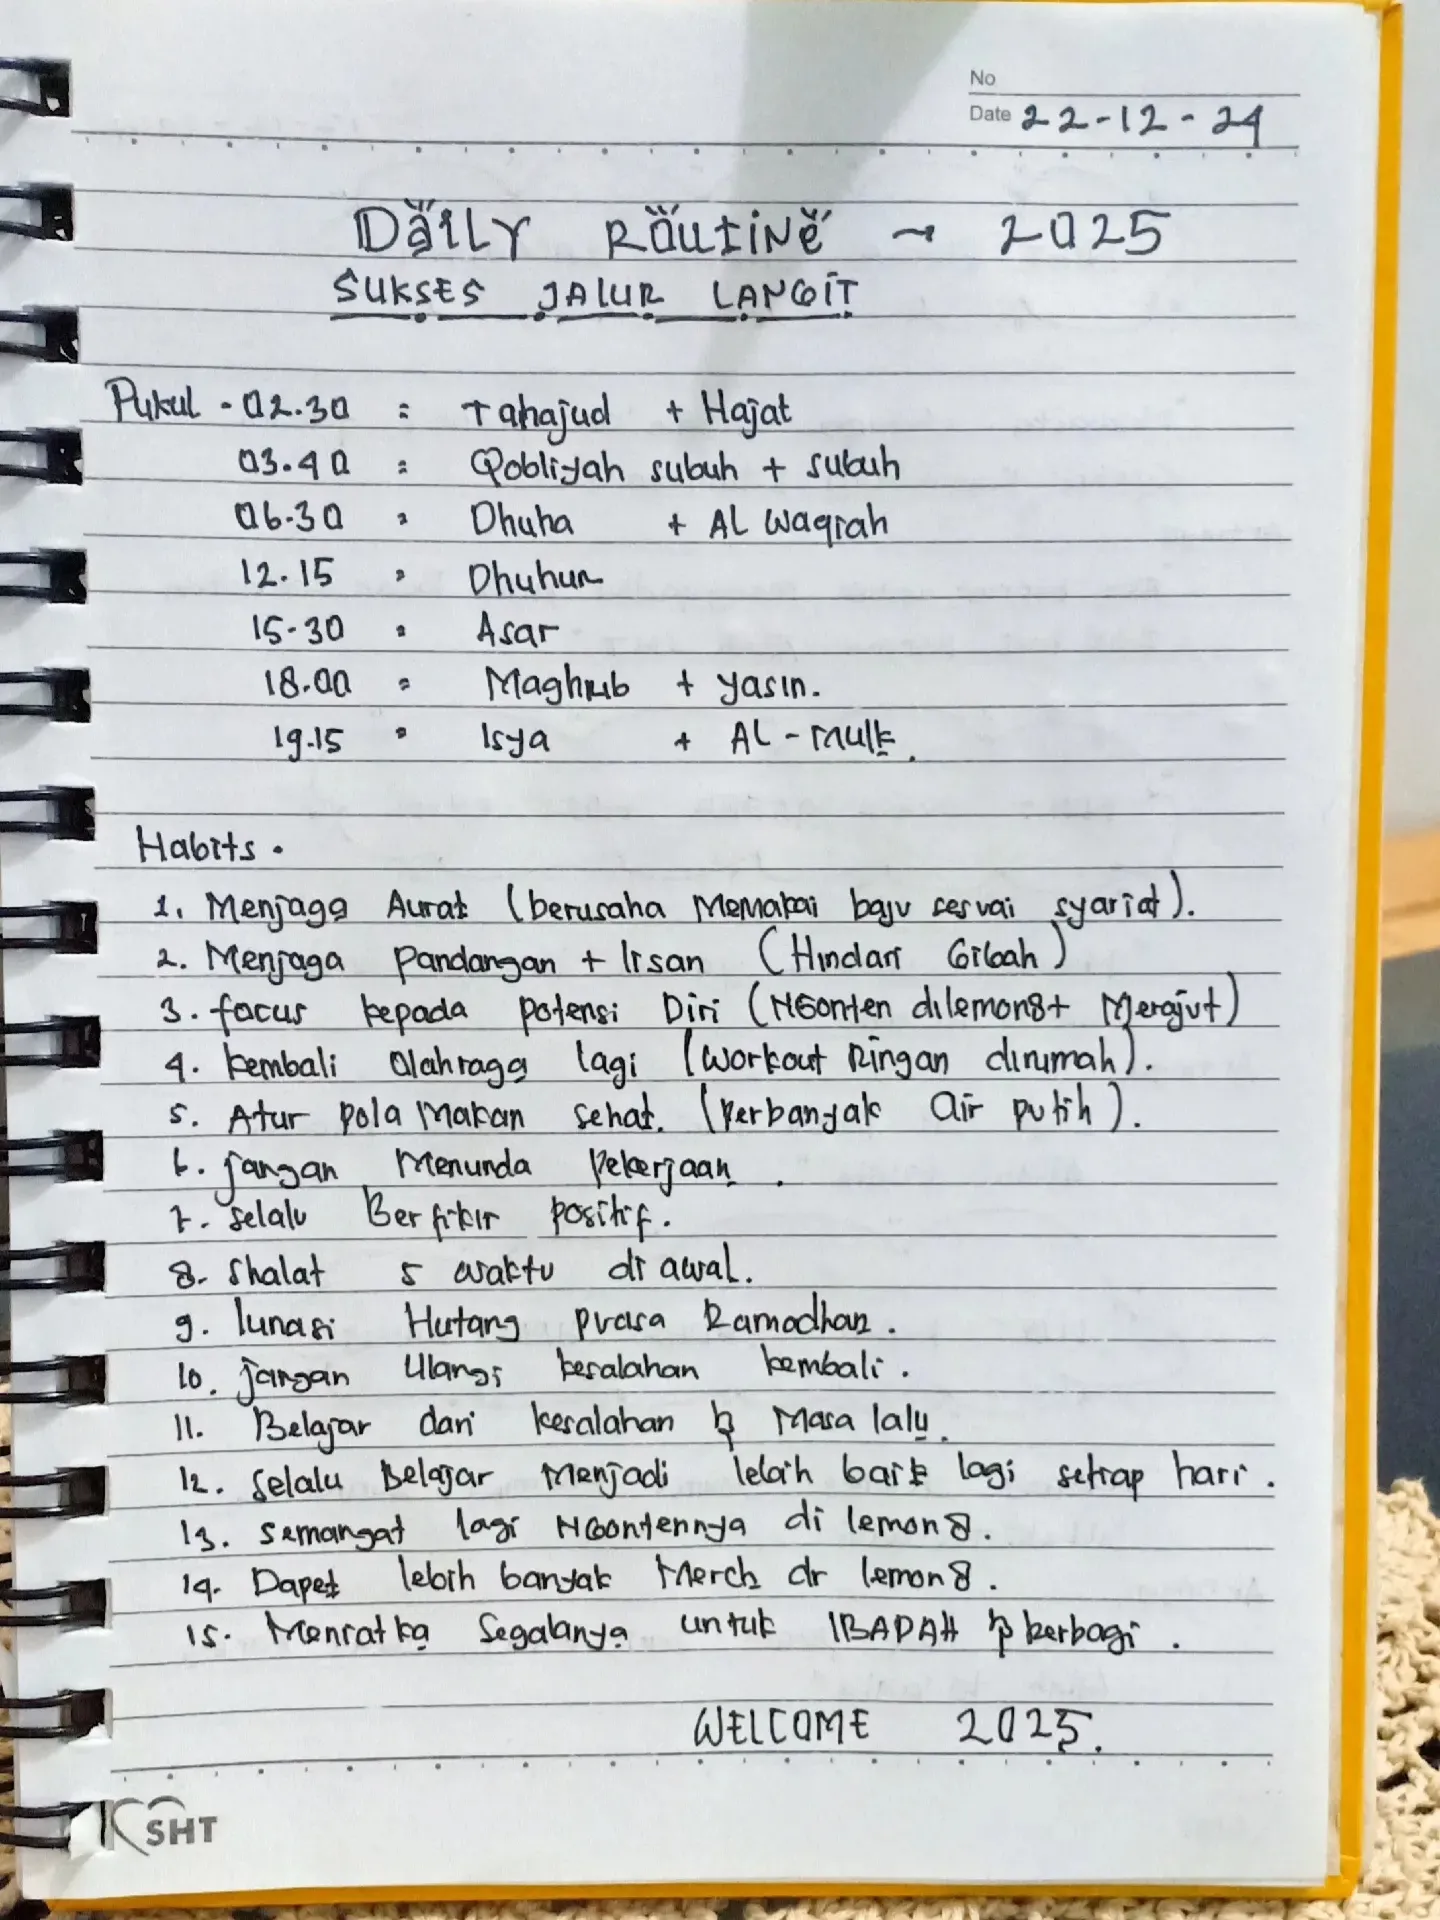 No
Date 22-12-24
Daily Routine → 2025
SUKSES JALUR LANGIT
Pukul - 02.30 = Tahajud + Hajat
03.40 = Qobliyah subuh + subuh
06.30 = Dhuha + AL Waqiah
12.15 = Dhuhur
15.30 = Asar
18.00 = Maghrib + yasin.
19.15 = Isya + AL - Mulk.
Habits.
1. Menjaga Aurat (berusaha Memakai baju sesuai syariat).
2. Menjaga Pandangan + lisan (Hindari Gibah)
3. focus kepada potensi Diri (NGonten dilemon8+ Merajut)
4. kembali Olahraga lagi (workout Ringan dirumah).
5. Atur pola Makan sehat. (Perbanyak Air putih).
6. jangan Menunda Pekerjaan.
7. selalu Berfikir positif.
8. Shalat 5 waktu di awal.
9. lunasi Hutang puasa Ramadhan.
10. jangan Ulangi kesalahan kembali.
11. Belajar dari kesalahan & Masa lalu.
12. selalu Belajar Menjadi lebih baik lagi setiap hari.
13. semangat lagi NGontennya di lemon8.
14. Dapet lebih banyak Merch dr lemon8.
15. Meniatka Segalanya untuk IBADAH & berbagi.
WELCOME 2025.
SHT